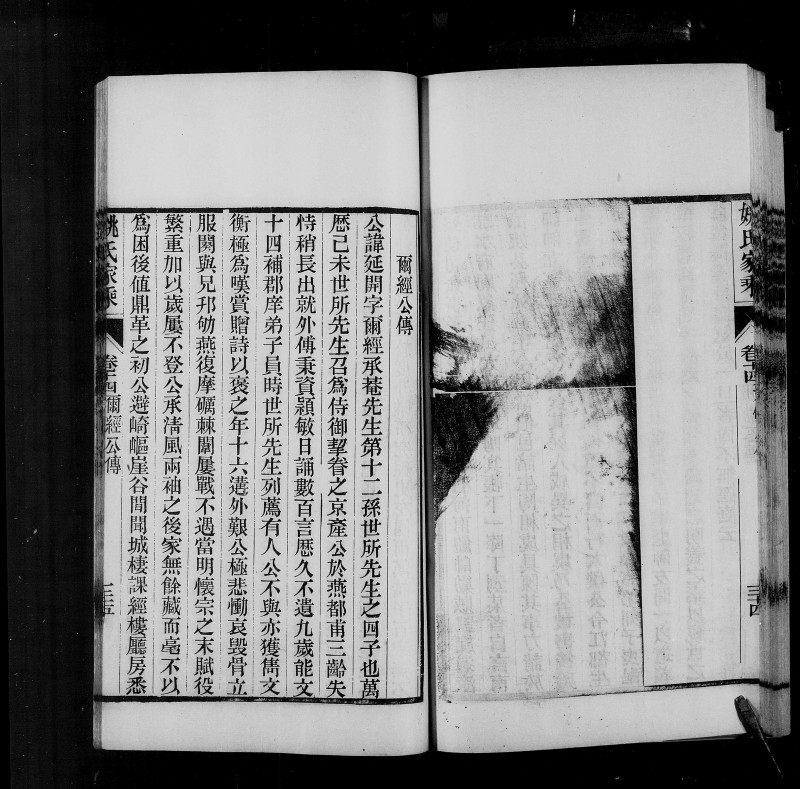 姚氏家乘
卷十四
三十四
爾經公傳
公諱延開字爾經承菴先生第十二孫世所先生之四子也萬
歷己未世所先生召爲侍御挈眷之京產公於燕都甫三齡失
恃稍長出就外傅秉資穎敏日誦數百言歷久不遺九歲能文
十四補郡庠弟子員時世所先生列薦有人公不與亦獲雋文
衡極爲嘆賞贈詩以褒之年十六遘外艱公極悲慟哀毀骨立
服闋與兄邦劬燕復摩礪棘闈屢戰不遇當明懷宗之末賦役
繁重加以歲屢不登公承清風兩袖之後家無餘藏而毫不以
爲困後値鼎革之初公避崎嶇崖谷間聞城棲課經樓廳房悉
姚氏家乘
卷十四爾經公傳
三十五